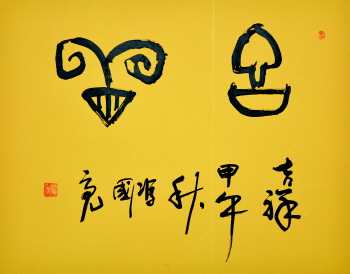 吉羊
吉祥
甲午
秋
馮
國
亮